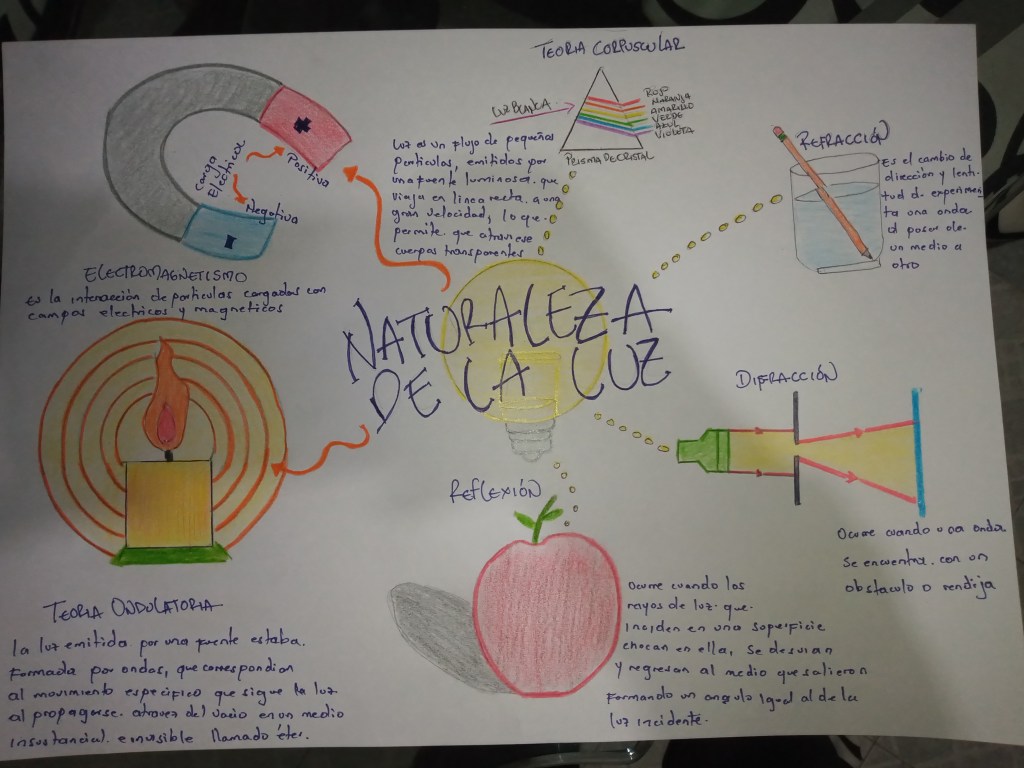 NATURALEZA
DE LA LUZ
TEORIA CORPUSCULAR
LUZ BLANCA
ROJO
NARANJA
AMARILLO
VERDE
AZUL
VIOLETA
PRISMA DE CRISTAL
Luz es un flujo de pequeñas
particulas, emitidas por
una fuente luminosa. que
viaja en linea recta. a una
gran velocidad, lo que.
permite. que atraviese
cuerpos transparentes
REFRACCIÓN
Es el cambio de
dirección y lenti-
tud q. experimen
ta una onda
al pasar de.
un medio a
otro
DIFRACCIÓN
Ocurre cuando una onda
se encuentra. con un
obstaculo o rendija
REFLEXIÓN
Ocurre cuando los
rayos de luz. que.
inciden en una superficie
chocan en ella, se desvian
y regresan al medio que salieron
formando un angulo igual al de la
luz incidente.
carga
Electrica
Positiva
Negativa
+
-
ELECTROMAGNETISMO
Es la interacción de particulas cargadas con
campos electricos y magneticos
TEORIA ONDULATORIA
la luz emitida por una fuente estaba.
formada por ondas, que correspondian
al movimiento especifico que sigue la luz
al propagarse. atravez del vacio en un medio
insustancial. e invisible llamado éter.